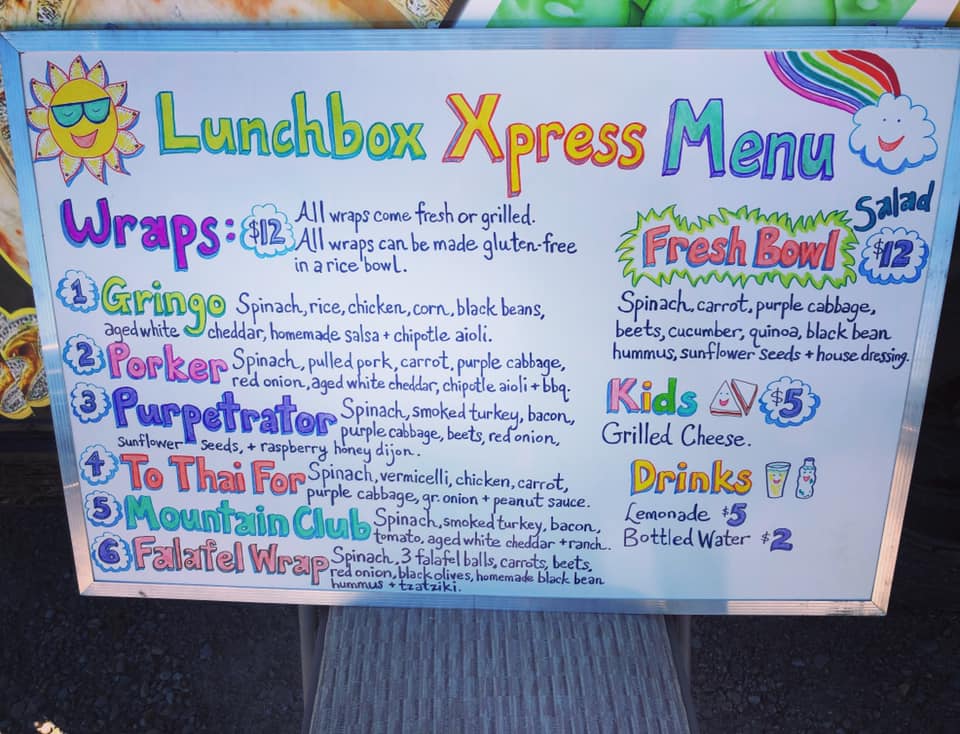 Lunchbox Xpress Menu
Wraps: $12 All wraps come fresh or grilled.
All wraps can be made gluten-free
in a rice bowl.
1 Gringo Spinach, rice, chicken, corn, black beans,
aged white cheddar, homemade salsa + chipotle aioli.
2 Porker Spinach, pulled pork, carrot, purple cabbage,
red onion, aged white cheddar, chipotle aioli + bbq.
3 Purpetrator Spinach, smoked turkey, bacon,
purple cabbage, beets, red onion,
sunflower seeds, + raspberry honey dijon.
4 To Thai For Spinach, vermicelli, chicken, carrot,
purple cabbage, gr. onion + peanut sauce.
5 Mountain Club Spinach, smoked turkey, bacon,
tomato, aged white cheddar + ranch.
6 Falafel Wrap Spinach, 3 falafel balls, carrots, beets,
red onion, black olives, homemade black bean
hummus + tzatziki.
Salad
Fresh Bowl $12
Spinach, carrot, purple cabbage,
beets, cucumber, quinoa, black bean
hummus, sunflower seeds + house dressing.
Kids $5
Grilled Cheese.
Drinks
Lemonade $5
Bottled Water $2